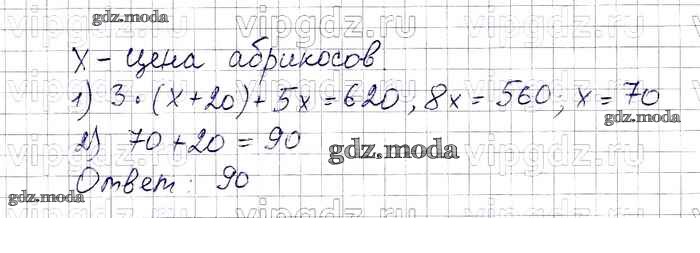 gdz.moda
vipgdz.ru
x - цена абрикосов.
1) 3·(x+20)+5x=620, 8x=560; x=70
gdz.moda
2) 70+20=90
gdz.moda
Ответ: 90
gdz.moda
vipgdz.ru